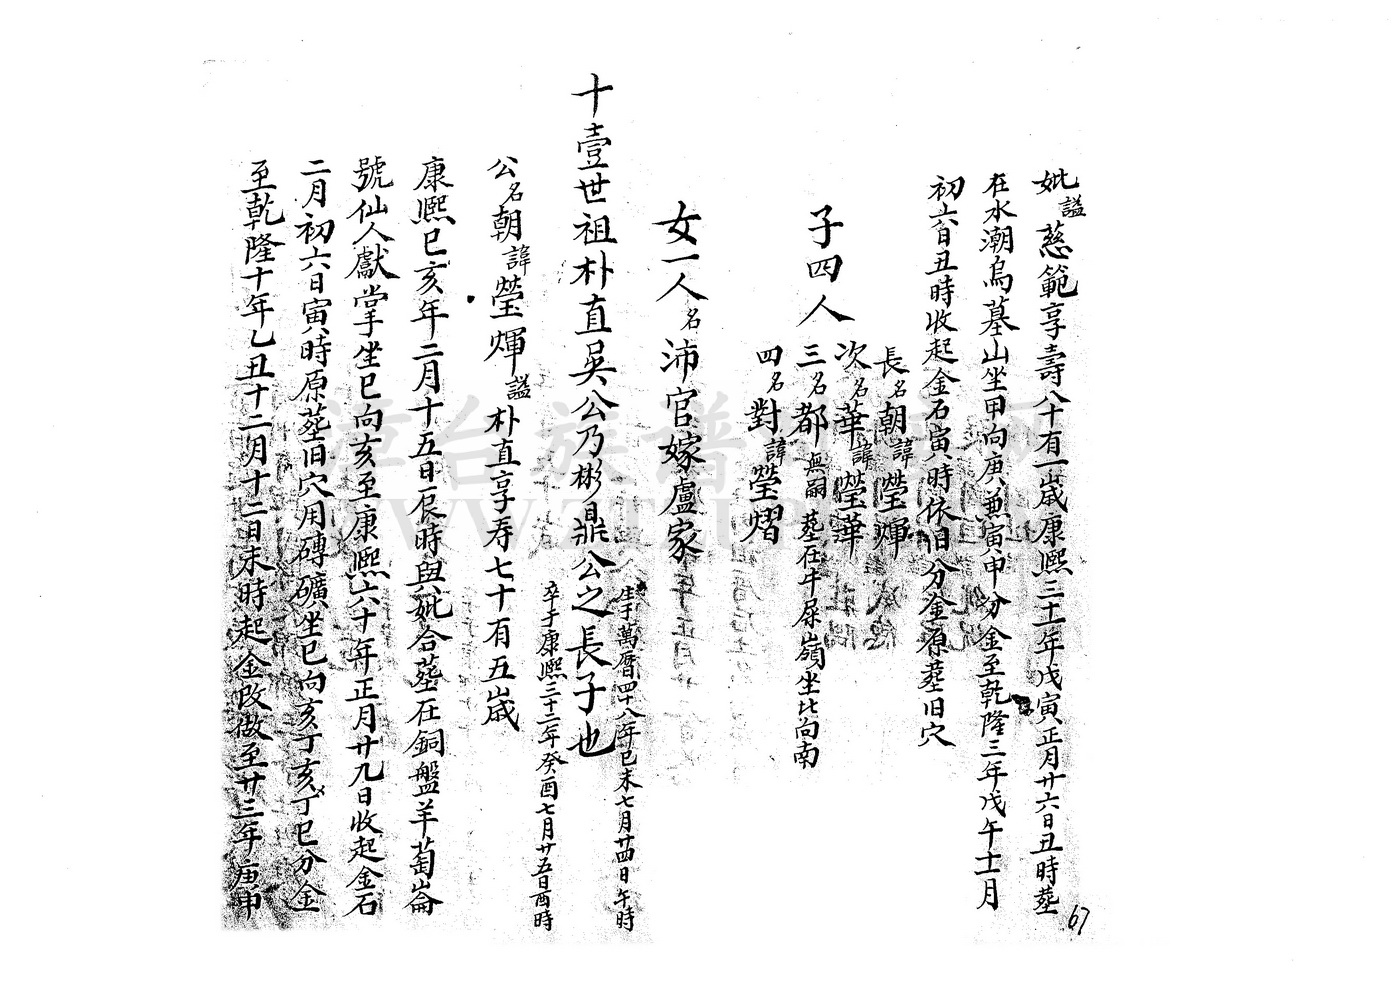 妣謚慈範享壽八十有一歲康熙三十一年戊寅正月廿六日丑時塟
在水潮烏墓山坐甲向庚兼寅申分金至乾隆三年戊午十一月
初六日丑時收起金石寅時依旧分金原塟旧穴
子四人
長名朝諱瑩煇
次名華諱瑩華
三名都無嗣塟在牛屎嶺坐北向南
四名對諱瑩熠
女一人名沛官嫁盧家
十壹世祖朴直吳公乃彬鼎公之長子也
生于萬曆四十八年己未七月廿四日午時
卒于康熙三十二年癸酉七月廿五日酉時
公名朝諱瑩煇謚朴直享寿七十有五歲
康熙己亥年二月十五日辰時與妣合塟在銅盤羊萄崙
號仙人獻掌坐巳向亥至康熙六十年正月廿九日收起金石
二月初六日寅時原塟旧穴用磚礦坐巳向亥丁亥丁巳分金
至乾隆十年乙丑十二月十二日未時起金改做至廿三年庚申
67